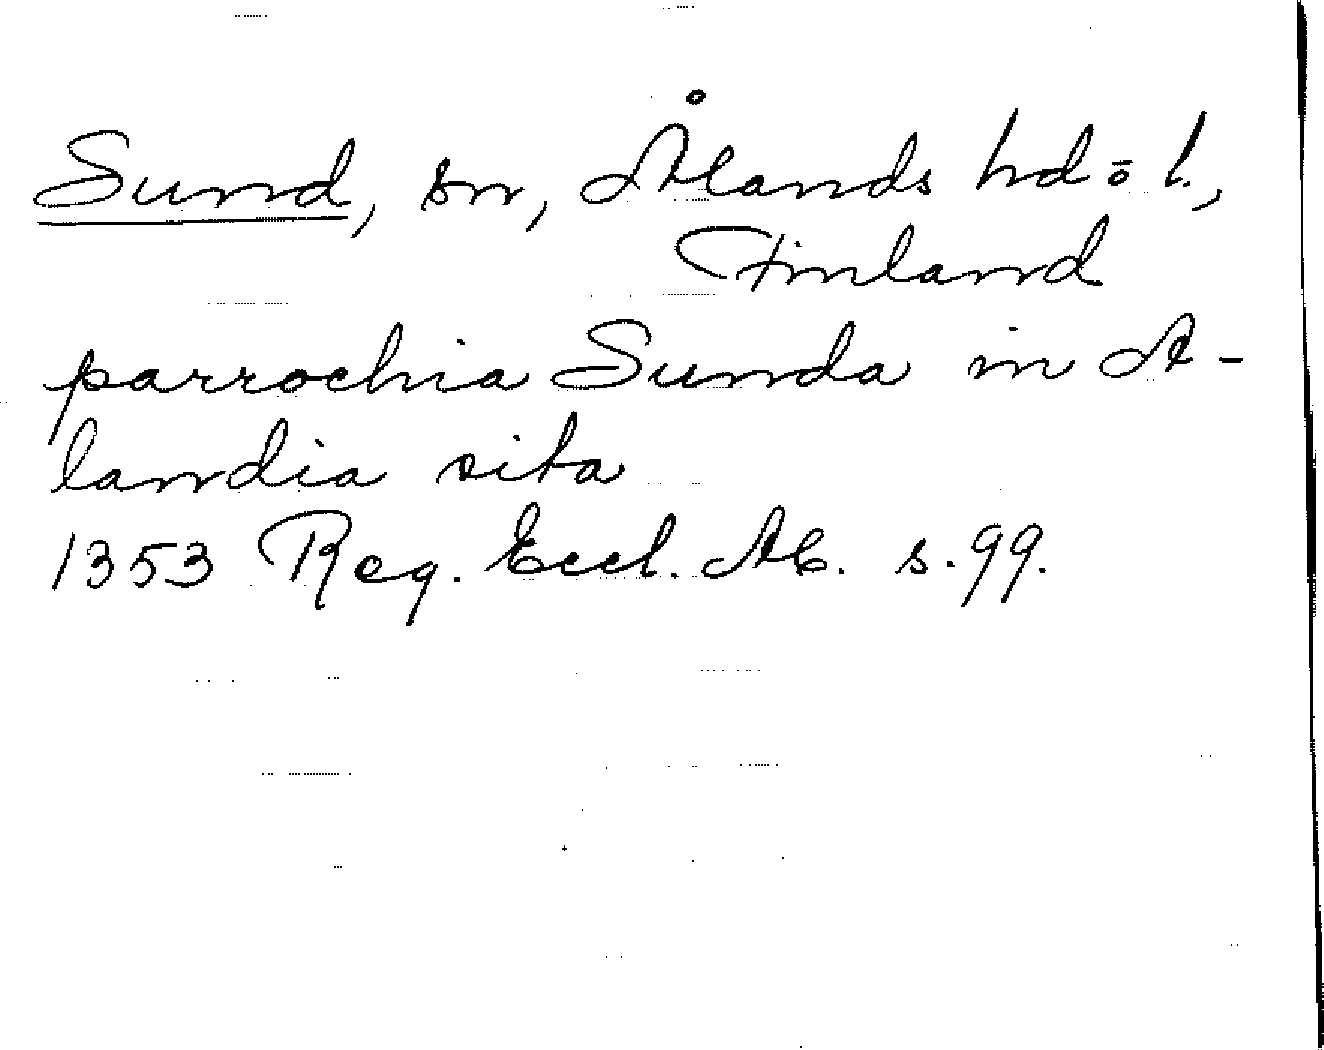 Sund, sn, Ålands hd o l.,
Finland
parrochia Sunda in A-
landia sita
1353 Reg. Eccl. Ab. s. 99.